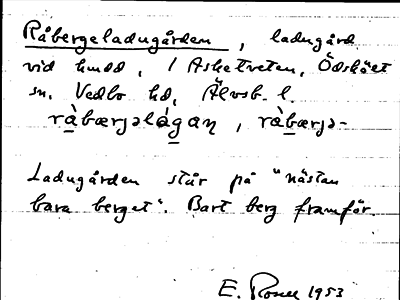 Råbergeladugården, ladugård
vid hmdd, i Asketveten, Ödskölt
sn, Vedbo hd, Älvsb. l.
rà̱bærjəlá̱gaɳ, rà̱bærjə-
Ladugården står på "nästan
bara berget". Bart berg framför.
E. Rosell 1953